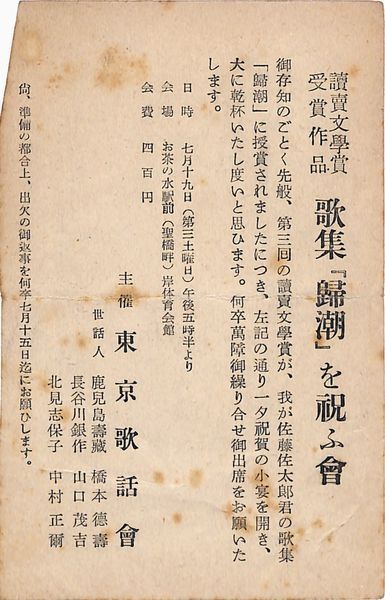 讀賣文學賞
受賞作品
歌集『歸潮』を祝ふ會
御存知のごとく先般、第三回の讀賣文學賞が、我が佐藤佐太郎君の歌集
「歸潮」に授賞されましたにつき、左記の通り一夕祝賀の小宴を開き、
大に乾杯いたし度いと思ひます。何卒萬障御繰り合せ御出席をお願いいた
します。
日時 七月十九日(第三土曜日)午後五時半より
会場 お茶の水駅前(聖橋畔)岸体育会館
会費 四百円
主催 東京歌話會
世話人 鹿兒島壽藏 橋本德壽
長谷川銀作 山口茂吉
北見志保子 中村正爾
尙、準備の都合上、出欠の御返事を何卒七月十五日迄にお願ひします。